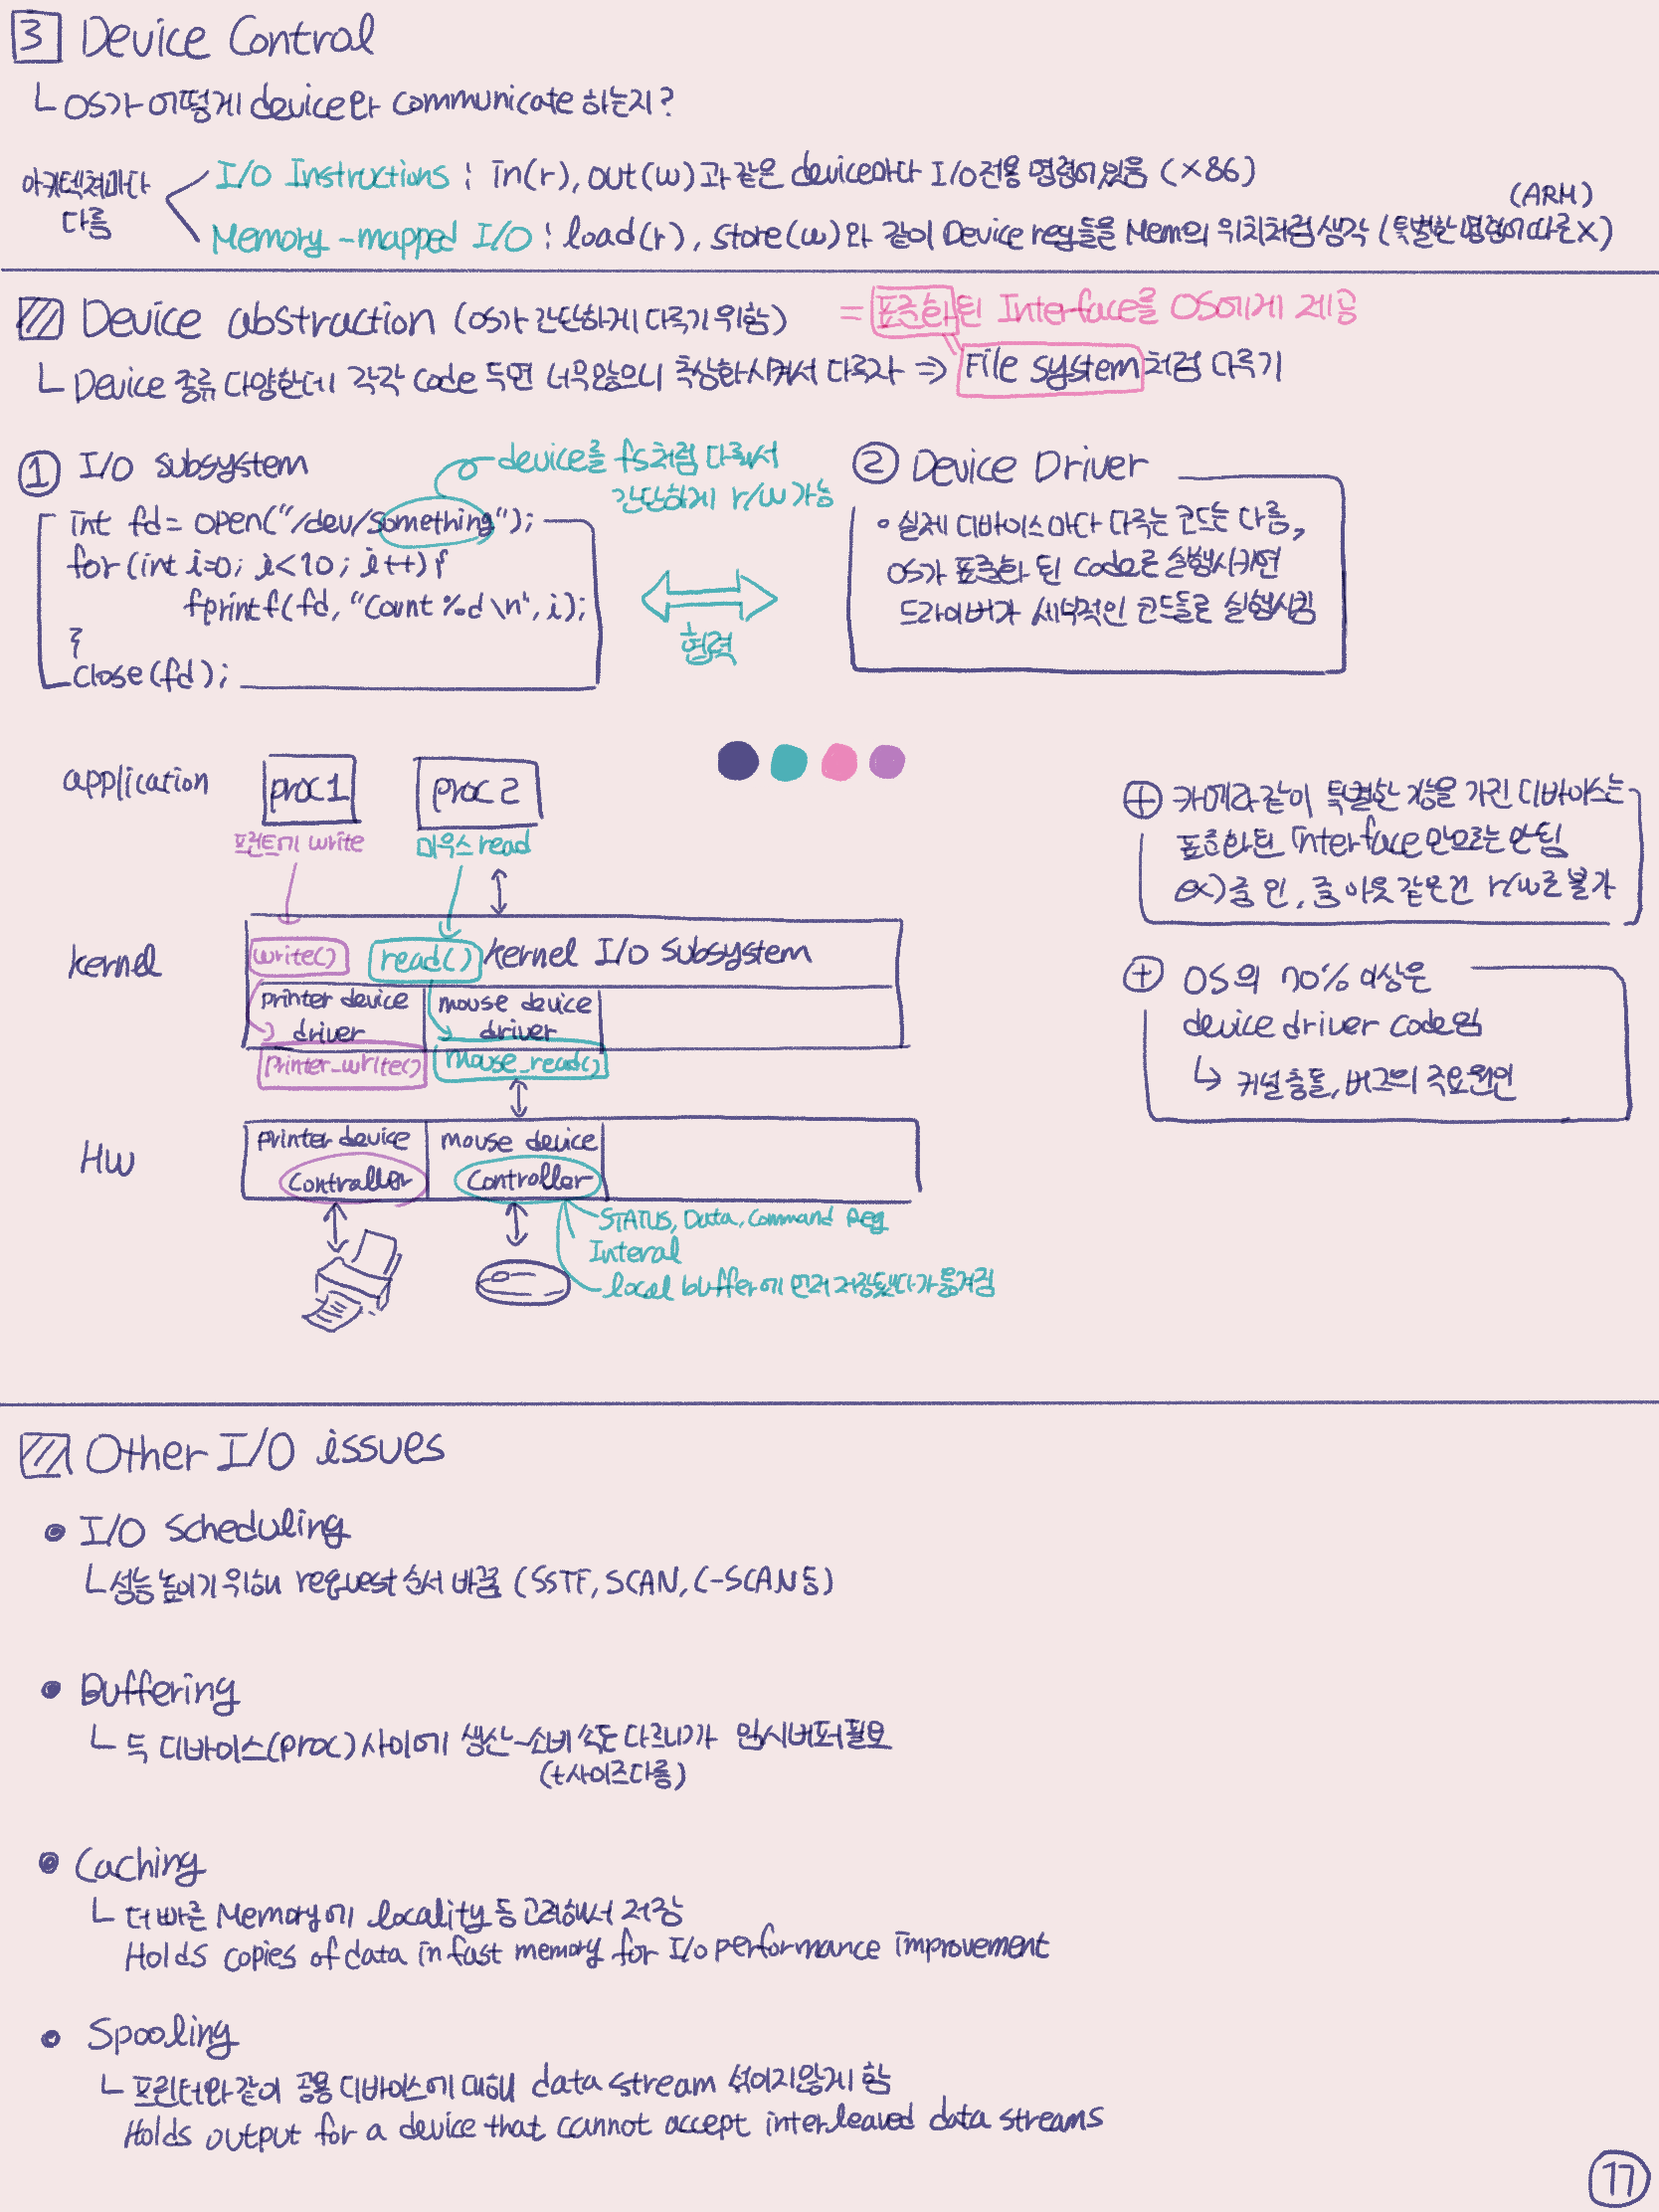 3 Device Control
OS가 어떻게 device와 communicate 하는지?
아키텍쳐마다
다름
I/O Instructions : in(r), out(w)과 같은 device마다 I/O 전용 명령이 있음 (x86)
(ARM)
Memory-mapped I/O : load(r), store(w)와 같이 Device reg들을 Mem의 위치처럼 생각 (특별한 명령어 따로 X)
Device abstraction (OS가 간단하게 다루기 위함)
= 표준화된 Interface를 OS에게 제공
Device 종류 다양할텐데 각각 code 두면 너무 많으니 추상화시켜서 다루자 ⇒ File system처럼 다루기
① I/O subsystem
device를 fs처럼 다뤄서
간단하게 r/w 가능
int fd = open("/dev/something");
for (int i=0; i<10; i++) {
fprintf(fd, "Count %d \n", i);
}
close(fd);
협력
② Device Driver
• 실제 디바이스마다 다루는 코드는 다름,
OS가 표준화 된 code로 실행시키면
드라이버가 세부적인 코드들로 실행시킴
application
proc 1
proc 2
프린트기 write
마우스 read
kernel
write()
read()
kernel I/O subsystem
printer device
driver
mouse device
driver
printer_write()
mouse_read()
HW
printer device
controller
mouse device
controller
STATUS, Data, Command Reg
Interal
local buffer에 먼저 저장됐다가 옮겨짐
⊕ 카메라 같이 특별한 기능을 가진 디바이스는
표준화된 Interface 만으로는 안됨
ex) 줌 인, 줌 아웃 같은건 r/w로 불가
⊕ OS의 70% 이상은
device driver code임
↳ 커널 충돌, 버그의 주요원인
Other I/O issues
• I/O Scheduling
성능 높이기 위해 request 순서 바꿈 (SSTF, SCAN, C-SCAN 등)
• Buffering
두 디바이스(proc) 사이에 생산-소비 속도 다르니까 임시버퍼 필요
(+사이즈 다름)
• Caching
더 빠른 Memory에 locality 등 고려해서 저장
Holds copies of data in fast memory for I/O performance improvement
• Spooling
프린터와 같이 공용 디바이스에 대해 data stream 섞이지 않게 함
Holds output for a device that cannot accept interleaved data streams
17